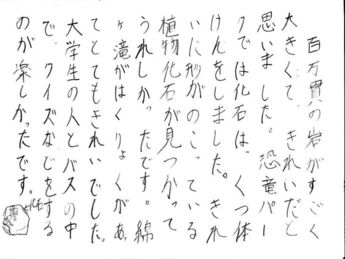 百万貫の岩がすごく
大きくて、きれいだと
思いました。恐竜パー
クでは化石は、くつ体
けんをしました。きれ
いに形がのこっている
植物化石が見つかって
うれしかったです。綿
ヶ滝がはくりょくがあっ
てとてもきれいでした。
大学生の人とバスの中
で、クイズなどをする
のが楽しかったです。
化石